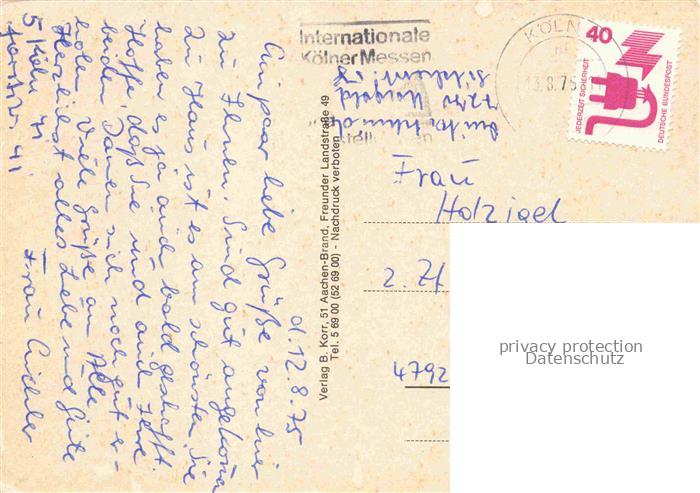 d. 12.8.75
Ein paar liebe Grüße von hier
zu Ihnen. Sind gut angekomm
zu Haus ist es am schönsten. Sie
haben es ja auch bald geschafft.
Hoffe, daß Sie und auch Ihre
beiden Damen sich noch gut er-
holen. Viele Grüße an Alle
Herzliebst alles Liebe und Gute
5 Köln 41
Frau
Internationale
Kölner Messen
KÖLN
13.8.75
40
JEDERZEIT SICHERHEIT
DEUTSCHE BUNDESPOST
Verlag B. Korr, 51 Aachen-Brand, Freunder Landstraße 49
Tel. 5 69 00 (52 69 00) - Nachdruck verboten
Frau
Holzigel
2. Zt
4792
privacy protection
Datenschutz